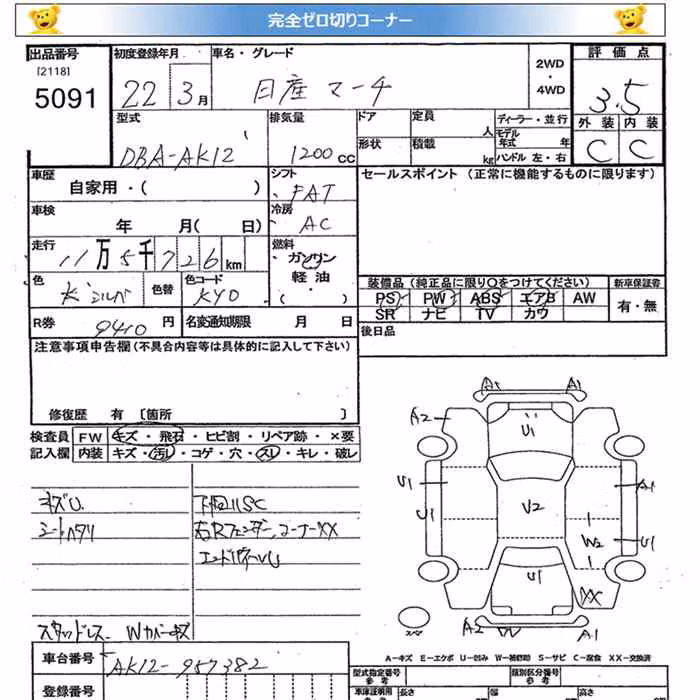 完全ゼロ切りコーナー
出品番号
[2118]
5091
初度登録年月
22 3月
車名・グレード
日産 マーチ
2WD
・
4WD
評価点
3.5
外装 内装
C C
型式
DBA-AK12
排気量
1200cc
ドア
定員
人
形状
積載
kg
ディーラー・並行
モデル年式 年
ハンドル 左・右
車歴
自家用・( )
シフト
FAT
セールスポイント (正常に機能するものに限ります)
車検
年 月( 日)
冷房
AC
走行
11万5千726km
燃料
ガソリン
軽油
・( )
色
色替
色コード
KY0
装備品 (純正品に限り○をつけてください)
新車保証書
PS PW ABS エアB AW
SR ナビ TV カワ
有・無
R券
9410円
名変通知期限 月 日
後日品
注意事項申告欄(不具合内容等は具体的に記入して下さい)
修復歴 有 [箇所 ]
検査員記入欄
FW キズ・飛石・ヒビ割・リペア跡・×要
内装 キズ・汚レ・コゲ・穴・スレ・キレ・破レ
キズU
シートヘタリ
下回りSC
右Rフェンダー、コーナーXX
エンドパネルU
スタッドレス Wカバーキズ
A1 A1
A2
U1
U1
U1
U2
A1
W2
U1
U1
XX
スペア
A2
W
A1
A-キズ E-エクボ U-凹み W-補修跡 S-サビ C-腐食 XX-交換済
車台番号
AK12-957382
登録番号
型式指定番号
参考
類別区分番号
参考
車庫証明用
参考
長さ
幅
高さ